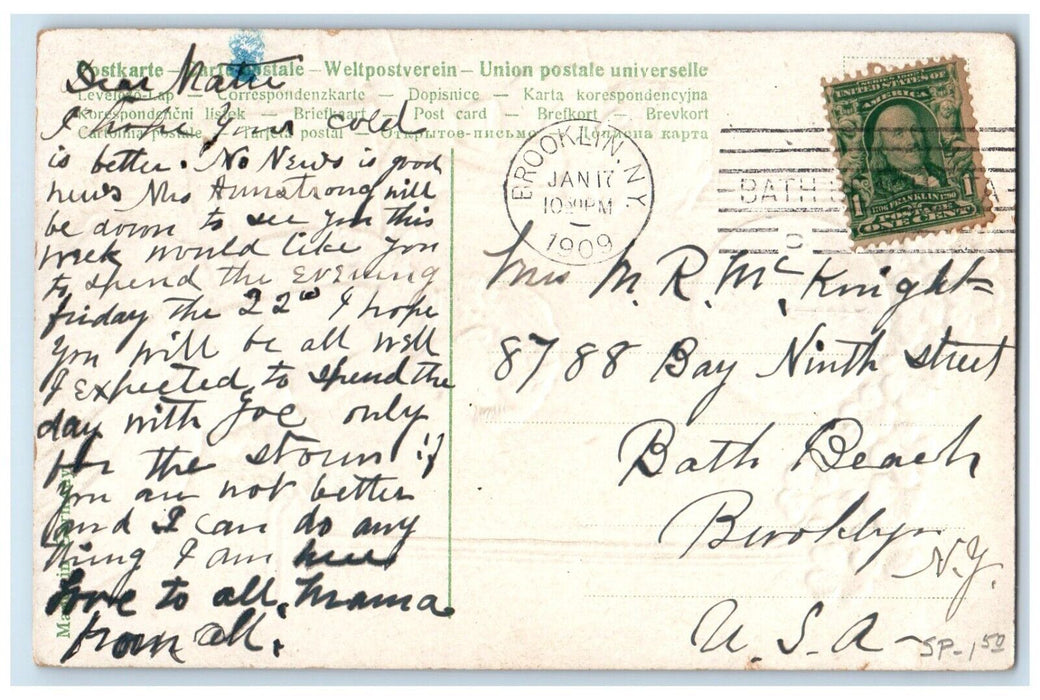 Postkarte – Carte postale – Weltpostverein – Union postale universelle
Levelező-Lap – Correspondenzkarte – Dopisnice – Karta korespondencyjna
Korespondenční lístek – Briefkaart – Post card – Brefkort – Brevkort
Cartolina postale – Tarjeta postal – Открытое-письмо – Дописна карта
Dear Matie
I hope your cold
is better. No News is good
news Mrs Armstrong will
be down to see you this
week would like you
to spend the Evening
friday the 22nd I hope
you will be all well
I expected to spend the
day with Joe only
for the storm if
you are not better
and I can do any
thing I am here
Love to all. Mama
from all.
Made in Germany
BROOKLYN, N.Y.
JAN 17
10 30 PM
1909
BATH BEACH STA
SERIES 1902
UNITED STATES OF
AMERICA
1 1
1706 FRANKLIN 1790
POSTAGE
ONE CENT
Mrs M. R. McKnight
8788 Bay Ninth street
Bath Beach
Brooklyn
N.Y.
U.S.A
SP-1.50